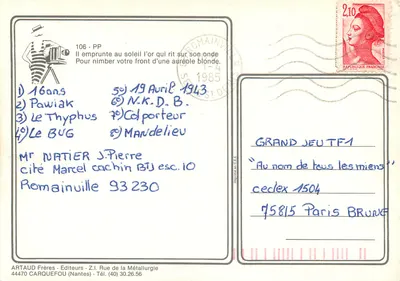 106 - PP
Il emprunte au soleil l'or qui rit sur son onde
Pour nimber votre front d'une auréole blonde.
1985
2,10
RÉPUBLIQUE FRANÇAISE
1) 16ans 5°) 19 Avril 1943
2) Pawiak 6°) N.K.D.B.
3) Le Thyphus 7°) Colporteur
4°) Le BUG 8°) MANDELIEU
Mr NATIER J.Pierre
cité Marcel cachin BTJ esc.10
Romainville 93230
GRAND JEU TF1
"Au nom de tous les miens"
cedex 1504
75815 Paris BRUNE
ARTAUD Frères - Éditeurs - Z.I. Rue de la Métallurgie
44470 CARQUEFOU (Nantes) - Tél. (40) 30.26.56